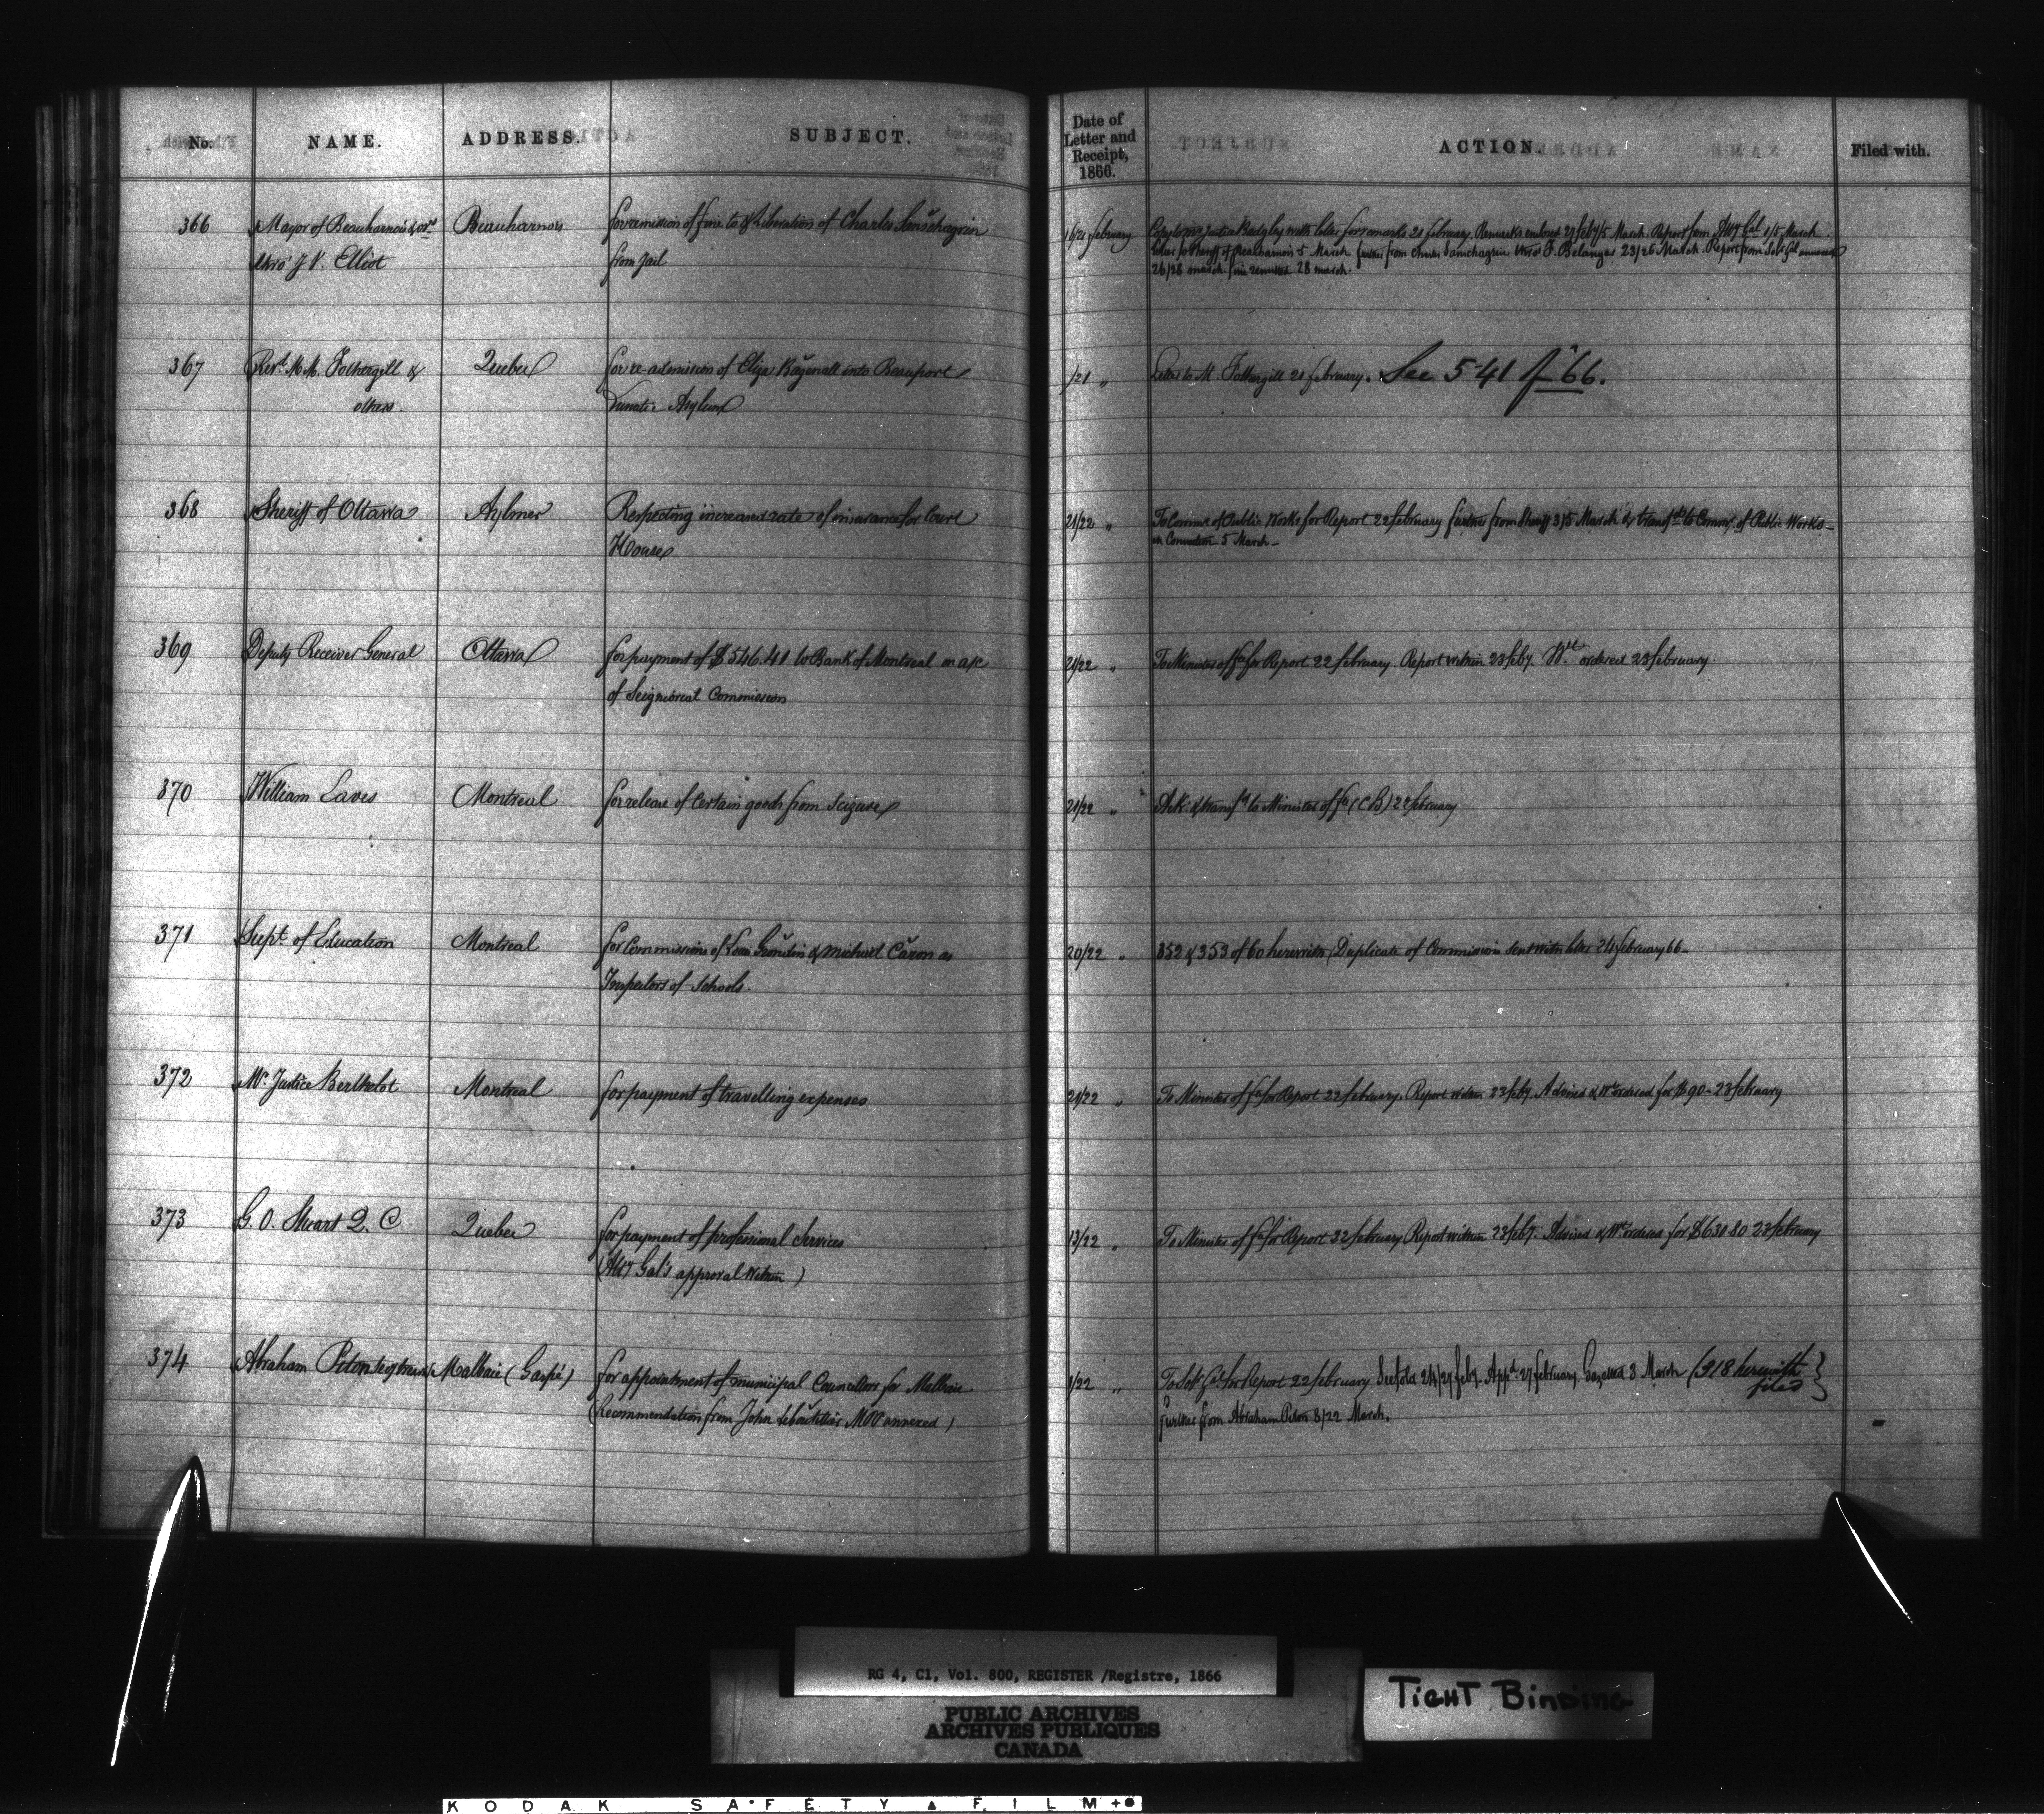 No. NAME. ADDRESS. SUBJECT. Date of Letter and Receipt, 1866. ACTION. Filed with.
366 Mayor of Beauharnois & ors Beauharnois for remission of fine to & liberation of Charles Sanschagrin 16/21 February Copy to Mr Justice Badgley with letter for remarks 21 February. Remarks 27 Feby/5 March. Report from Atty Gal 1/5 March.
thro' J V. Elliot from Jail Letter to Sheriff of Beauharnois 5 March further from Charles Sanschagrin thro' F. Belanger 23/26 March. Report from Sol: Gal annexed
26/28 march. fine remitted 28 march.
367 Revd. M M. Fothergill & Quebec for re-admission of Eliza Bagenall into Beauport /21 " Letter to M. Fothergill 21 February. See 541 of '66.
others. Lunatic Asylum
368 Sheriff of Ottawa Aylmer Respecting increased rate of insurance for Court 21/22 " To Commr. of Public Works for Report 22 February further from Sheriff 3/5 March & transfd to Commr. of Public Works -
House 5 March -
369 Deputy Receiver General Ottawa for payment of $546.41 to Bank of Montreal on a/c 21/22 " To Minister of Fa for Report 22 February. Report within 23 Feby. Wt ordered 23 February.
of Seigniorial Commission
370 William Eaves Montreal for release of certain goods from seizure 21/22 " Ack: & transfd to Minister of Fa (CB) 22 February
371 Supt of Education Montreal for Commissions of Grondin & Michael Caron as 20/22 " 352 & 353 of 60 herewith Duplicate of Commission sent with letter 24 February 66 -
Inspectors of Schools.
372 Mr. Justice Berthelot Montreal for payment of travelling expenses 21/22 " To Minister of Fa for Report 22 February. Report within 23 Feby. Advised & Wt ordered for $90 - 23 February
373 G. O. Stuart Q. C Quebec for payment of professional services 13/22 " To Minister of Fa for Report 22 February Report within 23 Feby. Advised & Wt ordered for $630.80 23 February
(Atty Gal's approval within)
374 Abraham Piton Malbaie (Gaspé) for appointment of municipal Councillors for Malbaie /22 " To Sol: Gal for Report 22 February 24/27 Feby. Appd. 27 February. Gazetted 3 March (318 herewith
(Recommendation from John LeBoutillier MPP annexed) files)
further from Abraham Piton 8/22 March.
RG 4, C1, Vol. 800, REGISTER /Registre, 1866
PUBLIC ARCHIVES
ARCHIVES PUBLIQUES
CANADA
TIGHT BINDING
KODAK SAFETY FILM